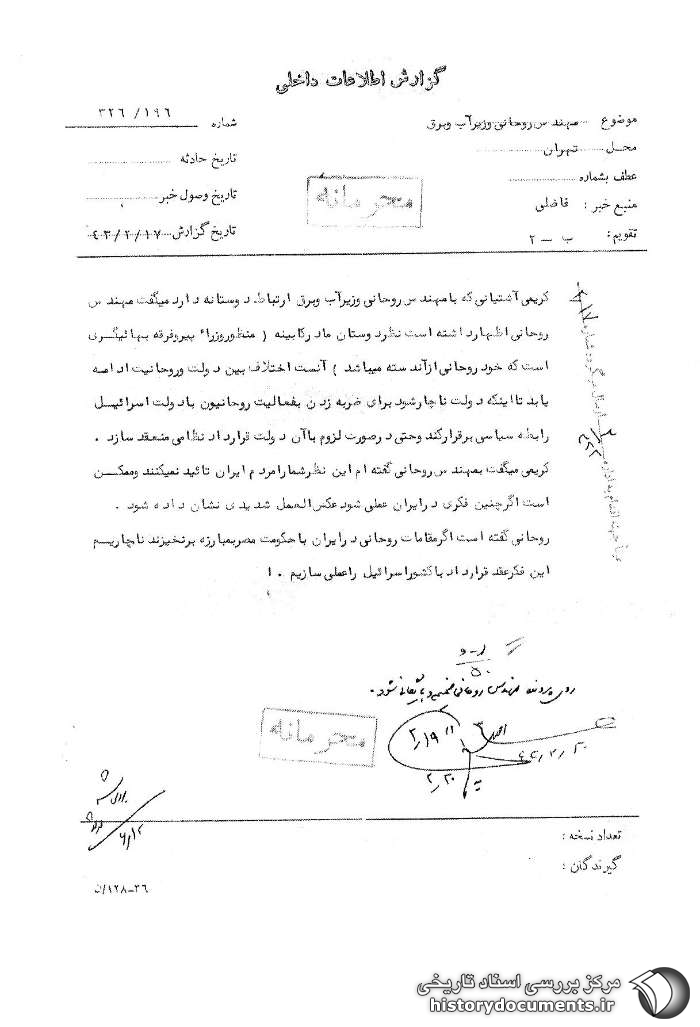 گزارش اطلاعات داخلی
موضوع مهندس روحانی وزیر آب وبرق
شماره ۳۲۶/۱۹۶
محل تهران
تاریخ حادثه
عطف بشماره
تاریخ وصول خبر
منبع خبر : فاضلی
تاریخ گزارش ۴۳/۲/۱۷
تقویم : ب - ۲
محرمانه
کریمی آشتیانی که با مهندس روحانی وزیر آب وبرق ارتباط دوستانه دارد میگفت مهندس
روحانی اظهار داشته است نظر دوستان ما در کابینه ( منظور وزراء پیرو فرقه بهائیگری
است که خود روحانی از آن دسته میباشد ) آنست اختلاف بین دولت و روحانیت ادامه
یابد تا اینکه دولت ناچار شود برای ضربه زدن بفعالیت روحانیون با دولت اسرائیل
رابطه سیاسی برقرار کند وحتی در صورت لزوم با آن دولت قرارداد نظامی منعقد سازد .
کریمی میگفت بمهندس روحانی گفته ام این نظر شما را مردم ایران تائید نمیکنند وممکن
است اگر چنین فکری در ایران عملی شود عکس العمل شدیدی نشان داده شود .
روحانی گفته است اگر مقامات روحانی در ایران با حکومت مصر بمبارزه برنخیزند ناچاریم
این فکر عقد قرارداد با کشور اسرائیل را عملی سازیم . ا
روی پرونده مهندس روحانی ضمیمه و بایگانی شود .
۲/۱۹
۲/۲۰
محرمانه
تعداد نسخه :
گیرندگان :
۱۲۸-۳۶/ن
مرکز بررسی اسناد تاریخی
historydocuments.ir